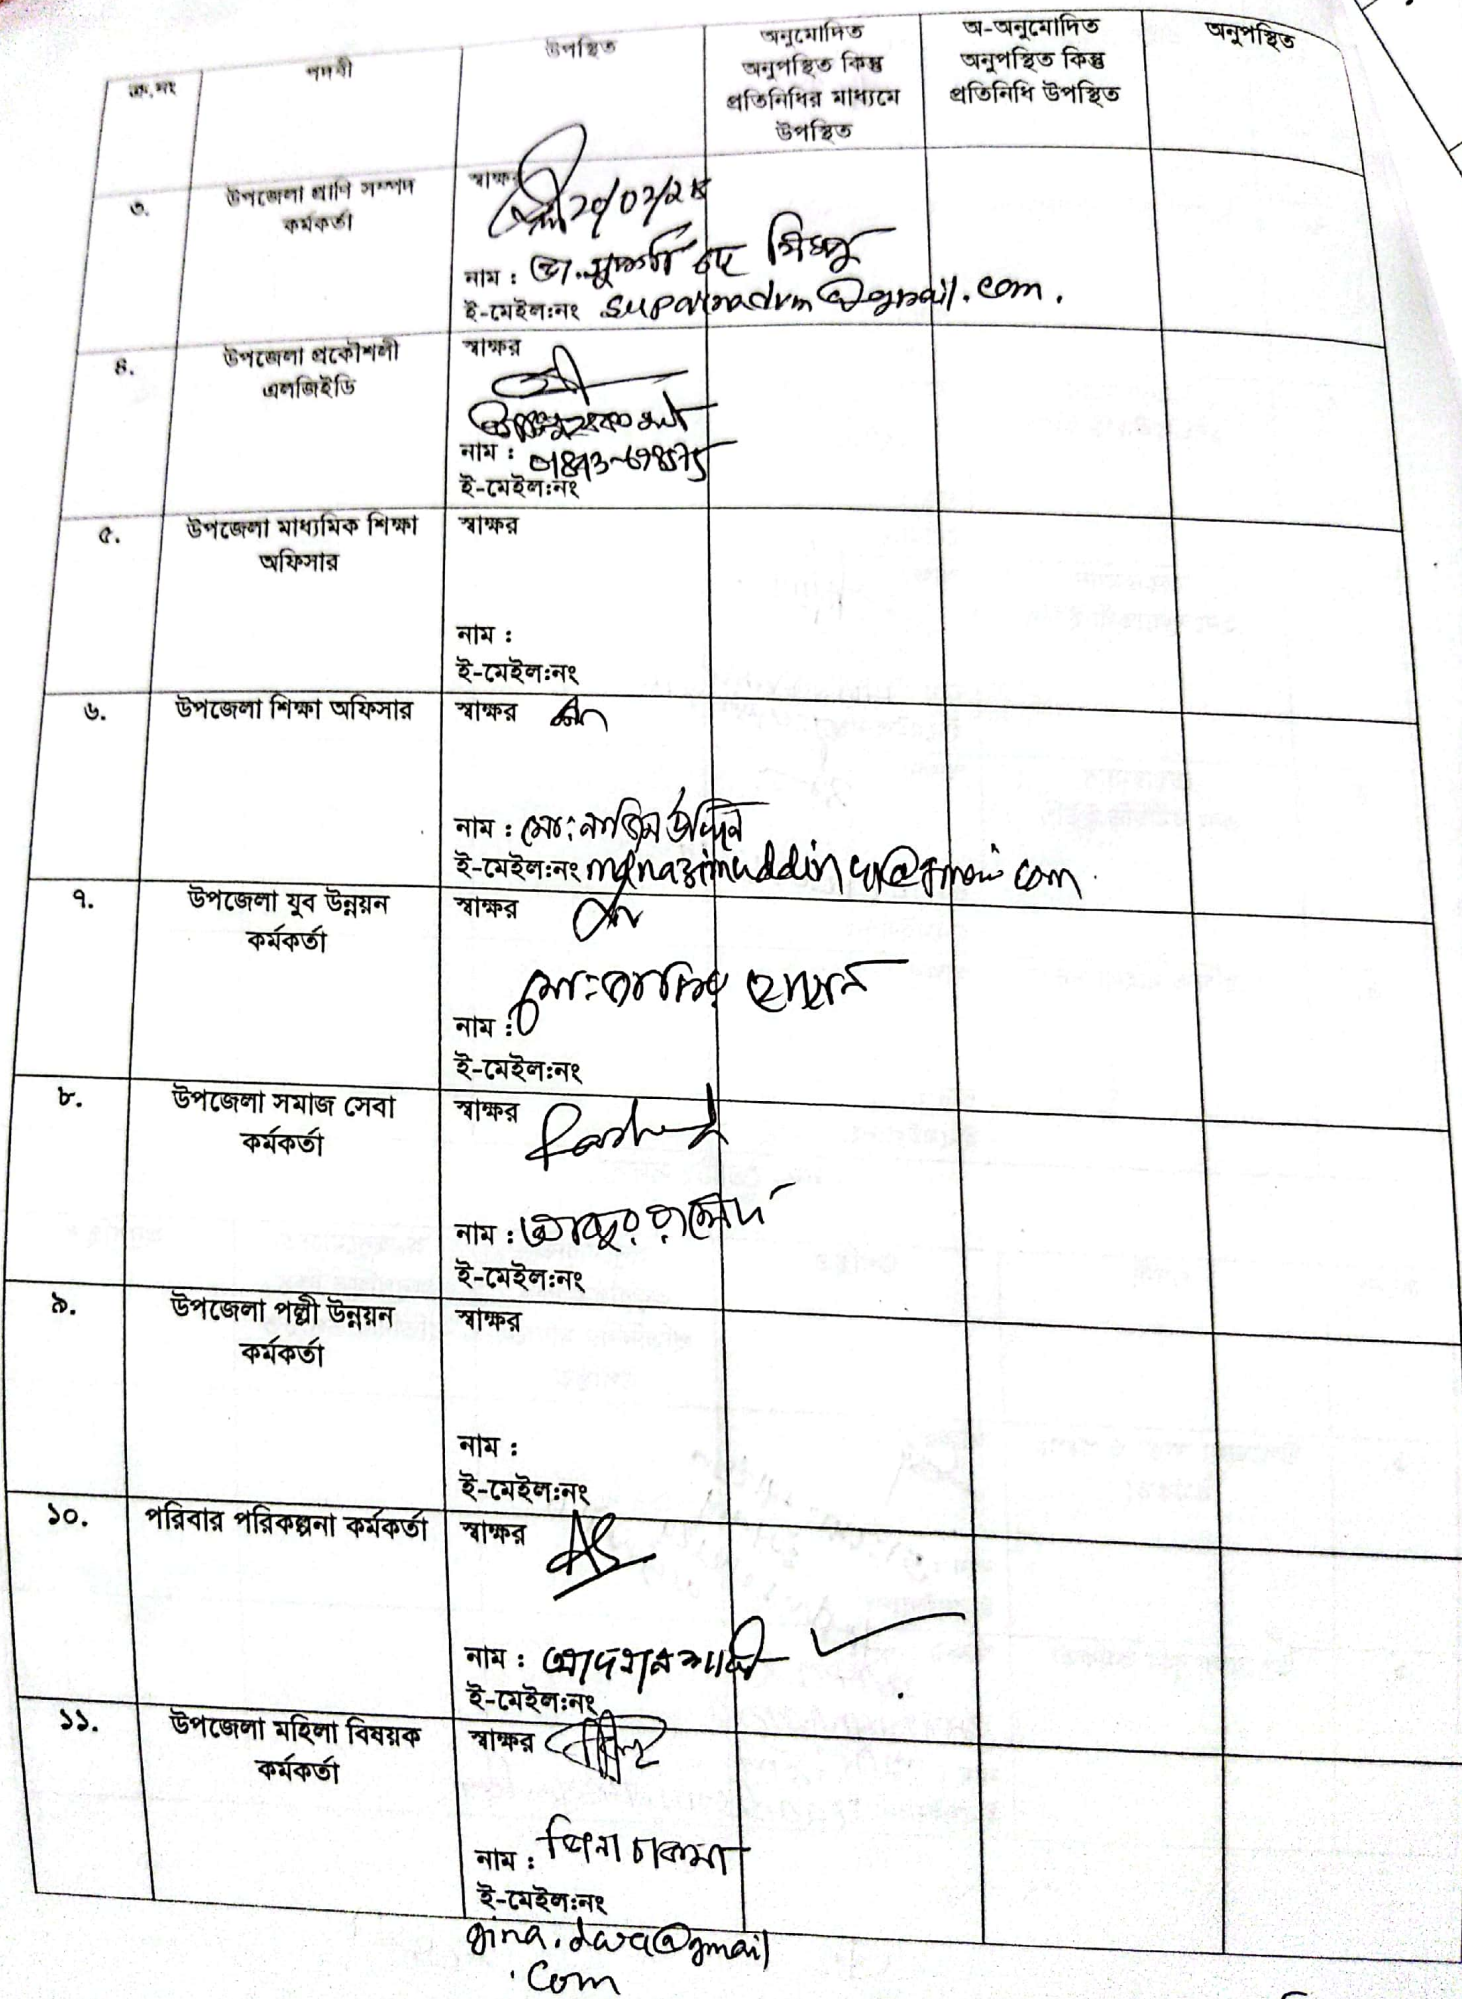 ক্র.নং
পদবী
উপস্থিত
অনুমোদিত
অনুপস্থিত কিন্তু
প্রতিনিধির মাধ্যমে
উপস্থিত
অ-অনুমোদিত
অনুপস্থিত কিন্তু
প্রতিনিধি উপস্থিত
অনুপস্থিত
৩.
উপজেলা প্রাণি সম্পদ
কর্মকর্তা
স্বাক্ষর
নাম : ডা. সুপর্ণা দে
ই-মেইল:নং
৪.
উপজেলা প্রকৌশলী
এলজিইডি
স্বাক্ষর
নাম :
ই-মেইল:নং
৫.
উপজেলা মাধ্যমিক শিক্ষা
অফিসার
স্বাক্ষর
নাম :
ই-মেইল:নং
৬.
উপজেলা শিক্ষা অফিসার
স্বাক্ষর
নাম : মো: নাজিম উদ্দিন
ই-মেইল:নং
৭.
উপজেলা যুব উন্নয়ন
কর্মকর্তা
স্বাক্ষর
মো: হোসেন
নাম :
ই-মেইল:নং
৮.
উপজেলা সমাজ সেবা
কর্মকর্তা
স্বাক্ষর
নাম : আব্দুর রাশেদ
ই-মেইল:নং
৯.
উপজেলা পল্লী উন্নয়ন
কর্মকর্তা
স্বাক্ষর
নাম :
ই-মেইল:নং
১০.
পরিবার পরিকল্পনা কর্মকর্তা
স্বাক্ষর
নাম :
ই-মেইল:নং
১১.
উপজেলা মহিলা বিষয়ক
কর্মকর্তা
স্বাক্ষর
নাম : চাকমা
ই-মেইল:নং
gina.dwa@gmail
.com